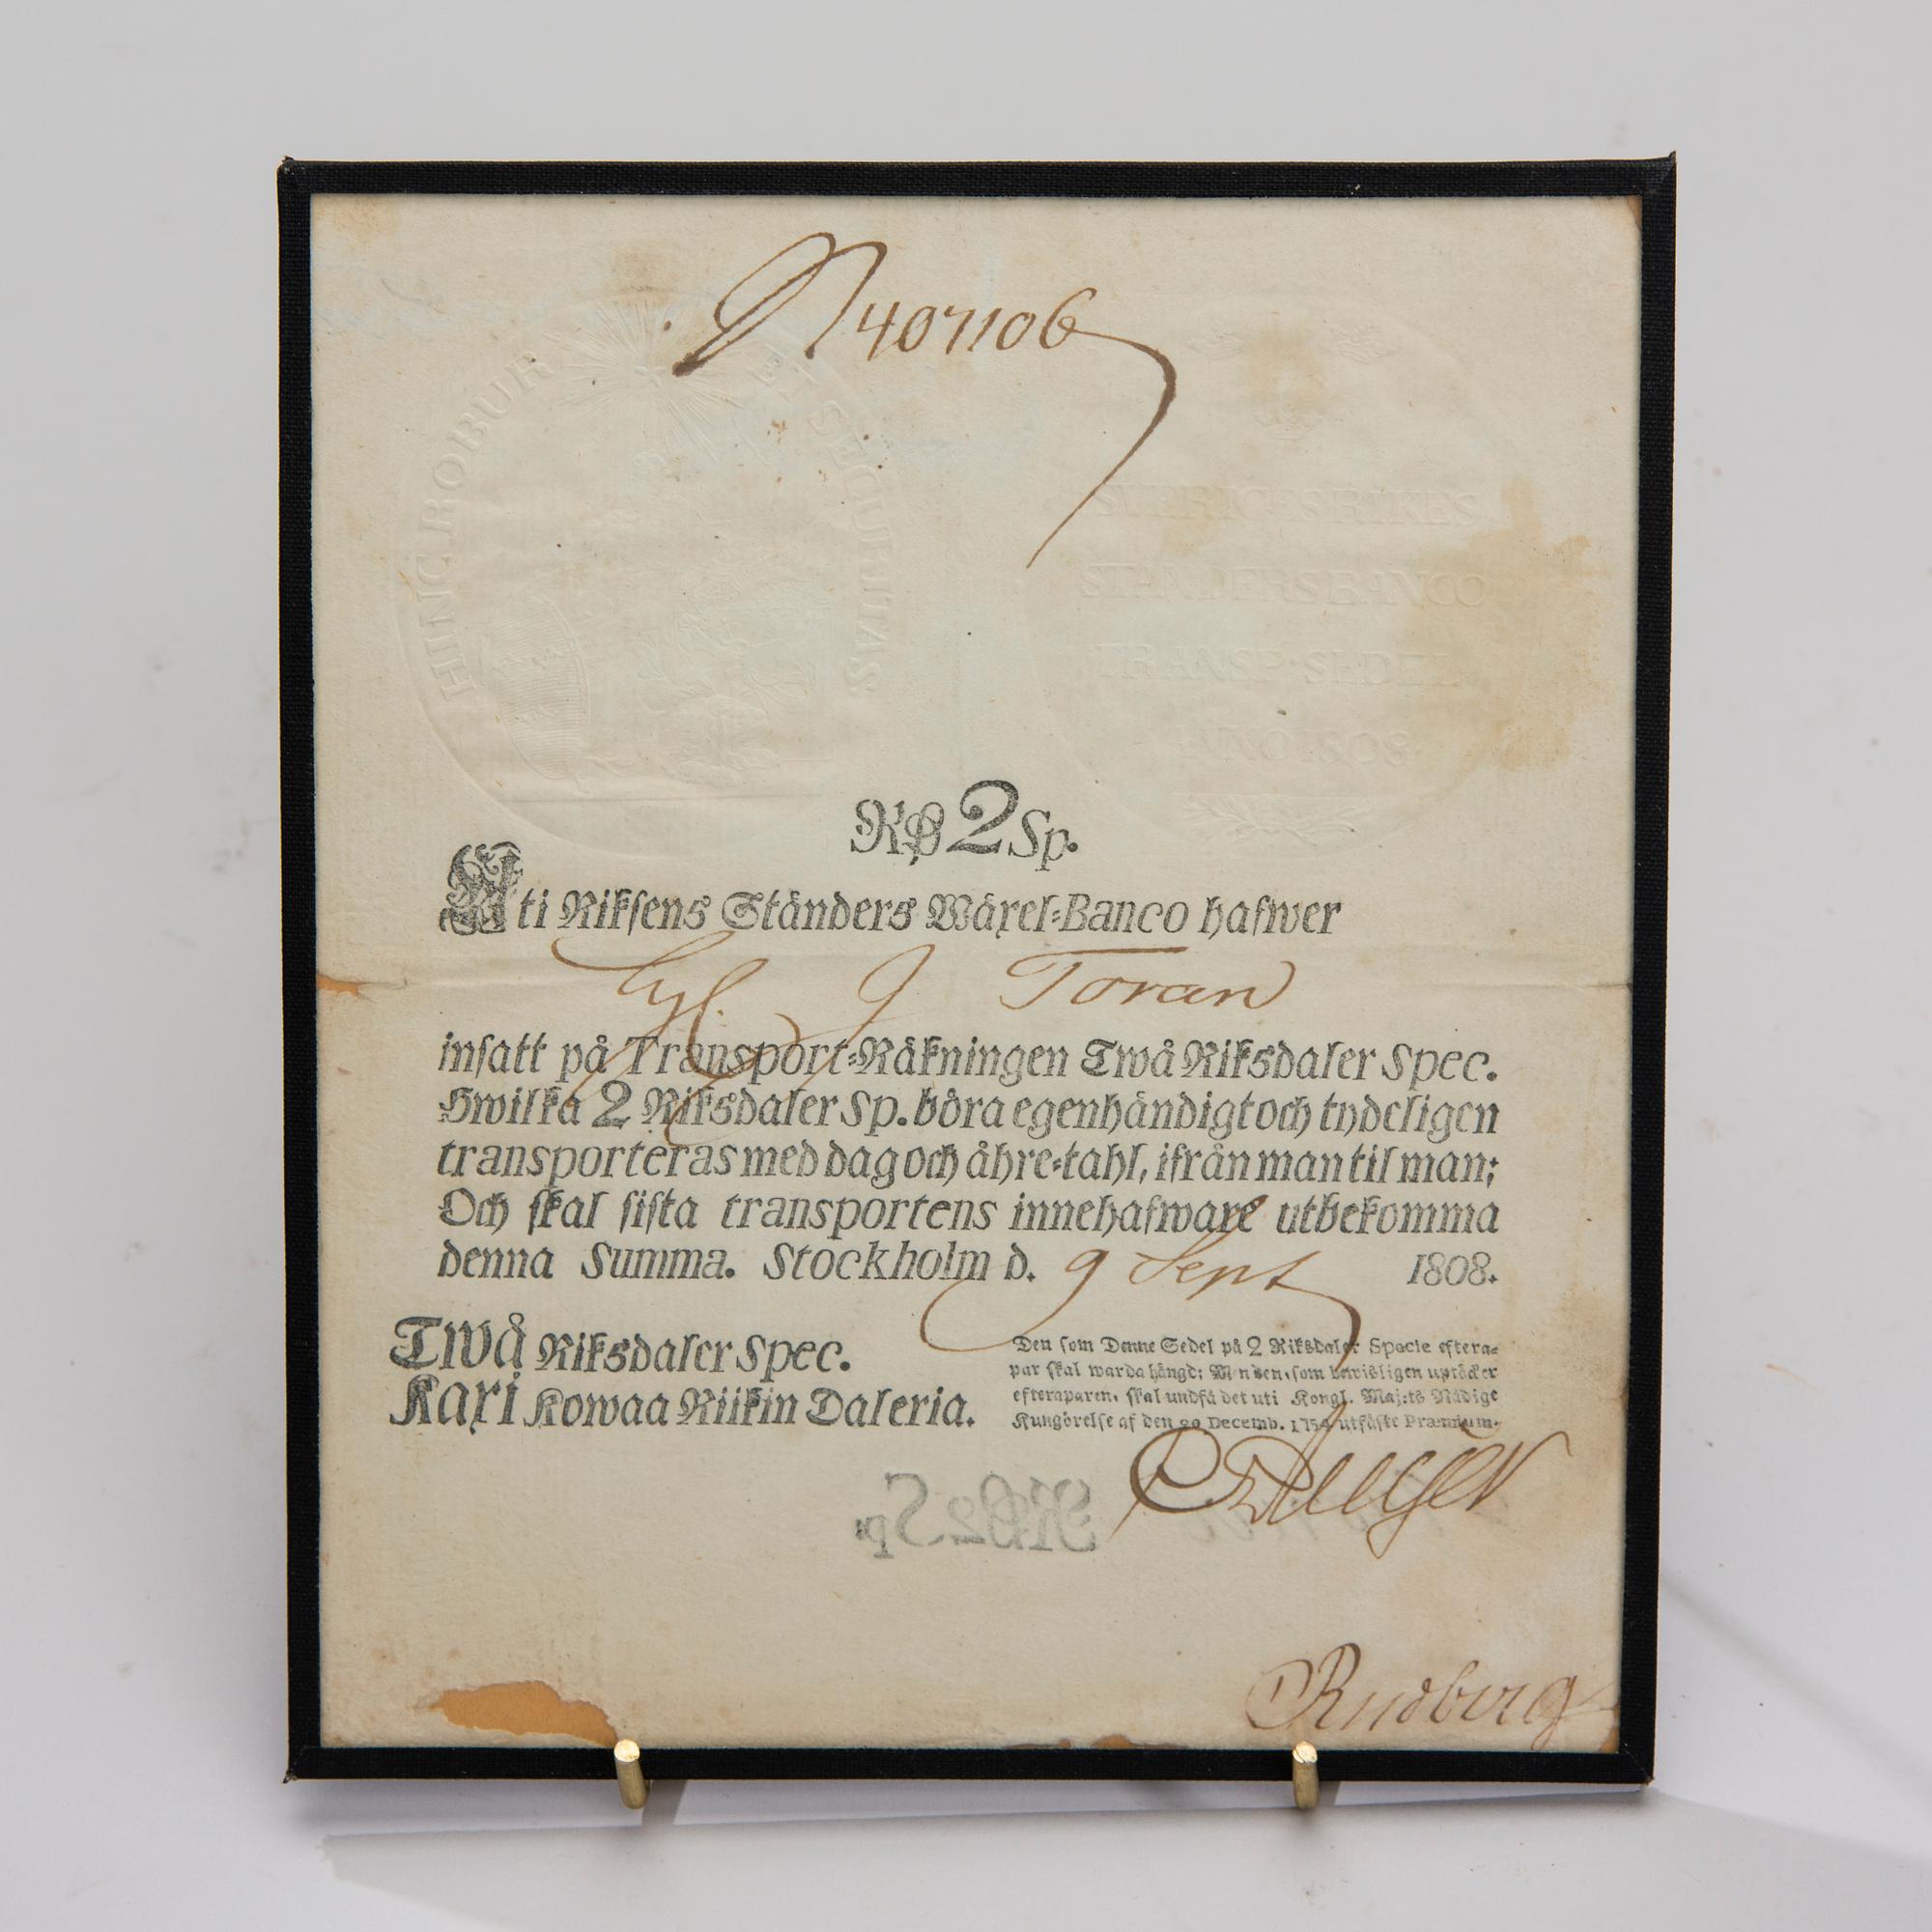 N 407106
HINC ROBUR ET SECURITAS
SVERIGES RIKES
STÄNDERS BANCO
TRANSP. SEDEL
ANNO 1808
RD 2 Sp.
Uti Riksens Ständers Wäxel-Banco hafwer
J Toran
insatt på Transport-Räkningen Twå Riksdaler Spec.
Hwilka 2 Riksdaler Sp. böra egenhändigt och tydeligen
transporteras med dag och åhre-tahl, ifrån man til man;
Och skal sista transportens innehafware utbekomma
denna Summa. Stockholm d. 9 Sept 1808.
Twå Riksdaler Spec.
Kaxi Kowaa Riikin Daleria.
Den som Denne Sedel på 2 Riksdaler Specie eftera-
par skal warda hängd; Men den, som bewisligen uptäcker
efteraparen, skal undfå det uti Kongl. Maj:ts Nådige
Kungörelse af den Decemb. 1754 utfäste Præmium.
RD 2 Sp.
Rudberg